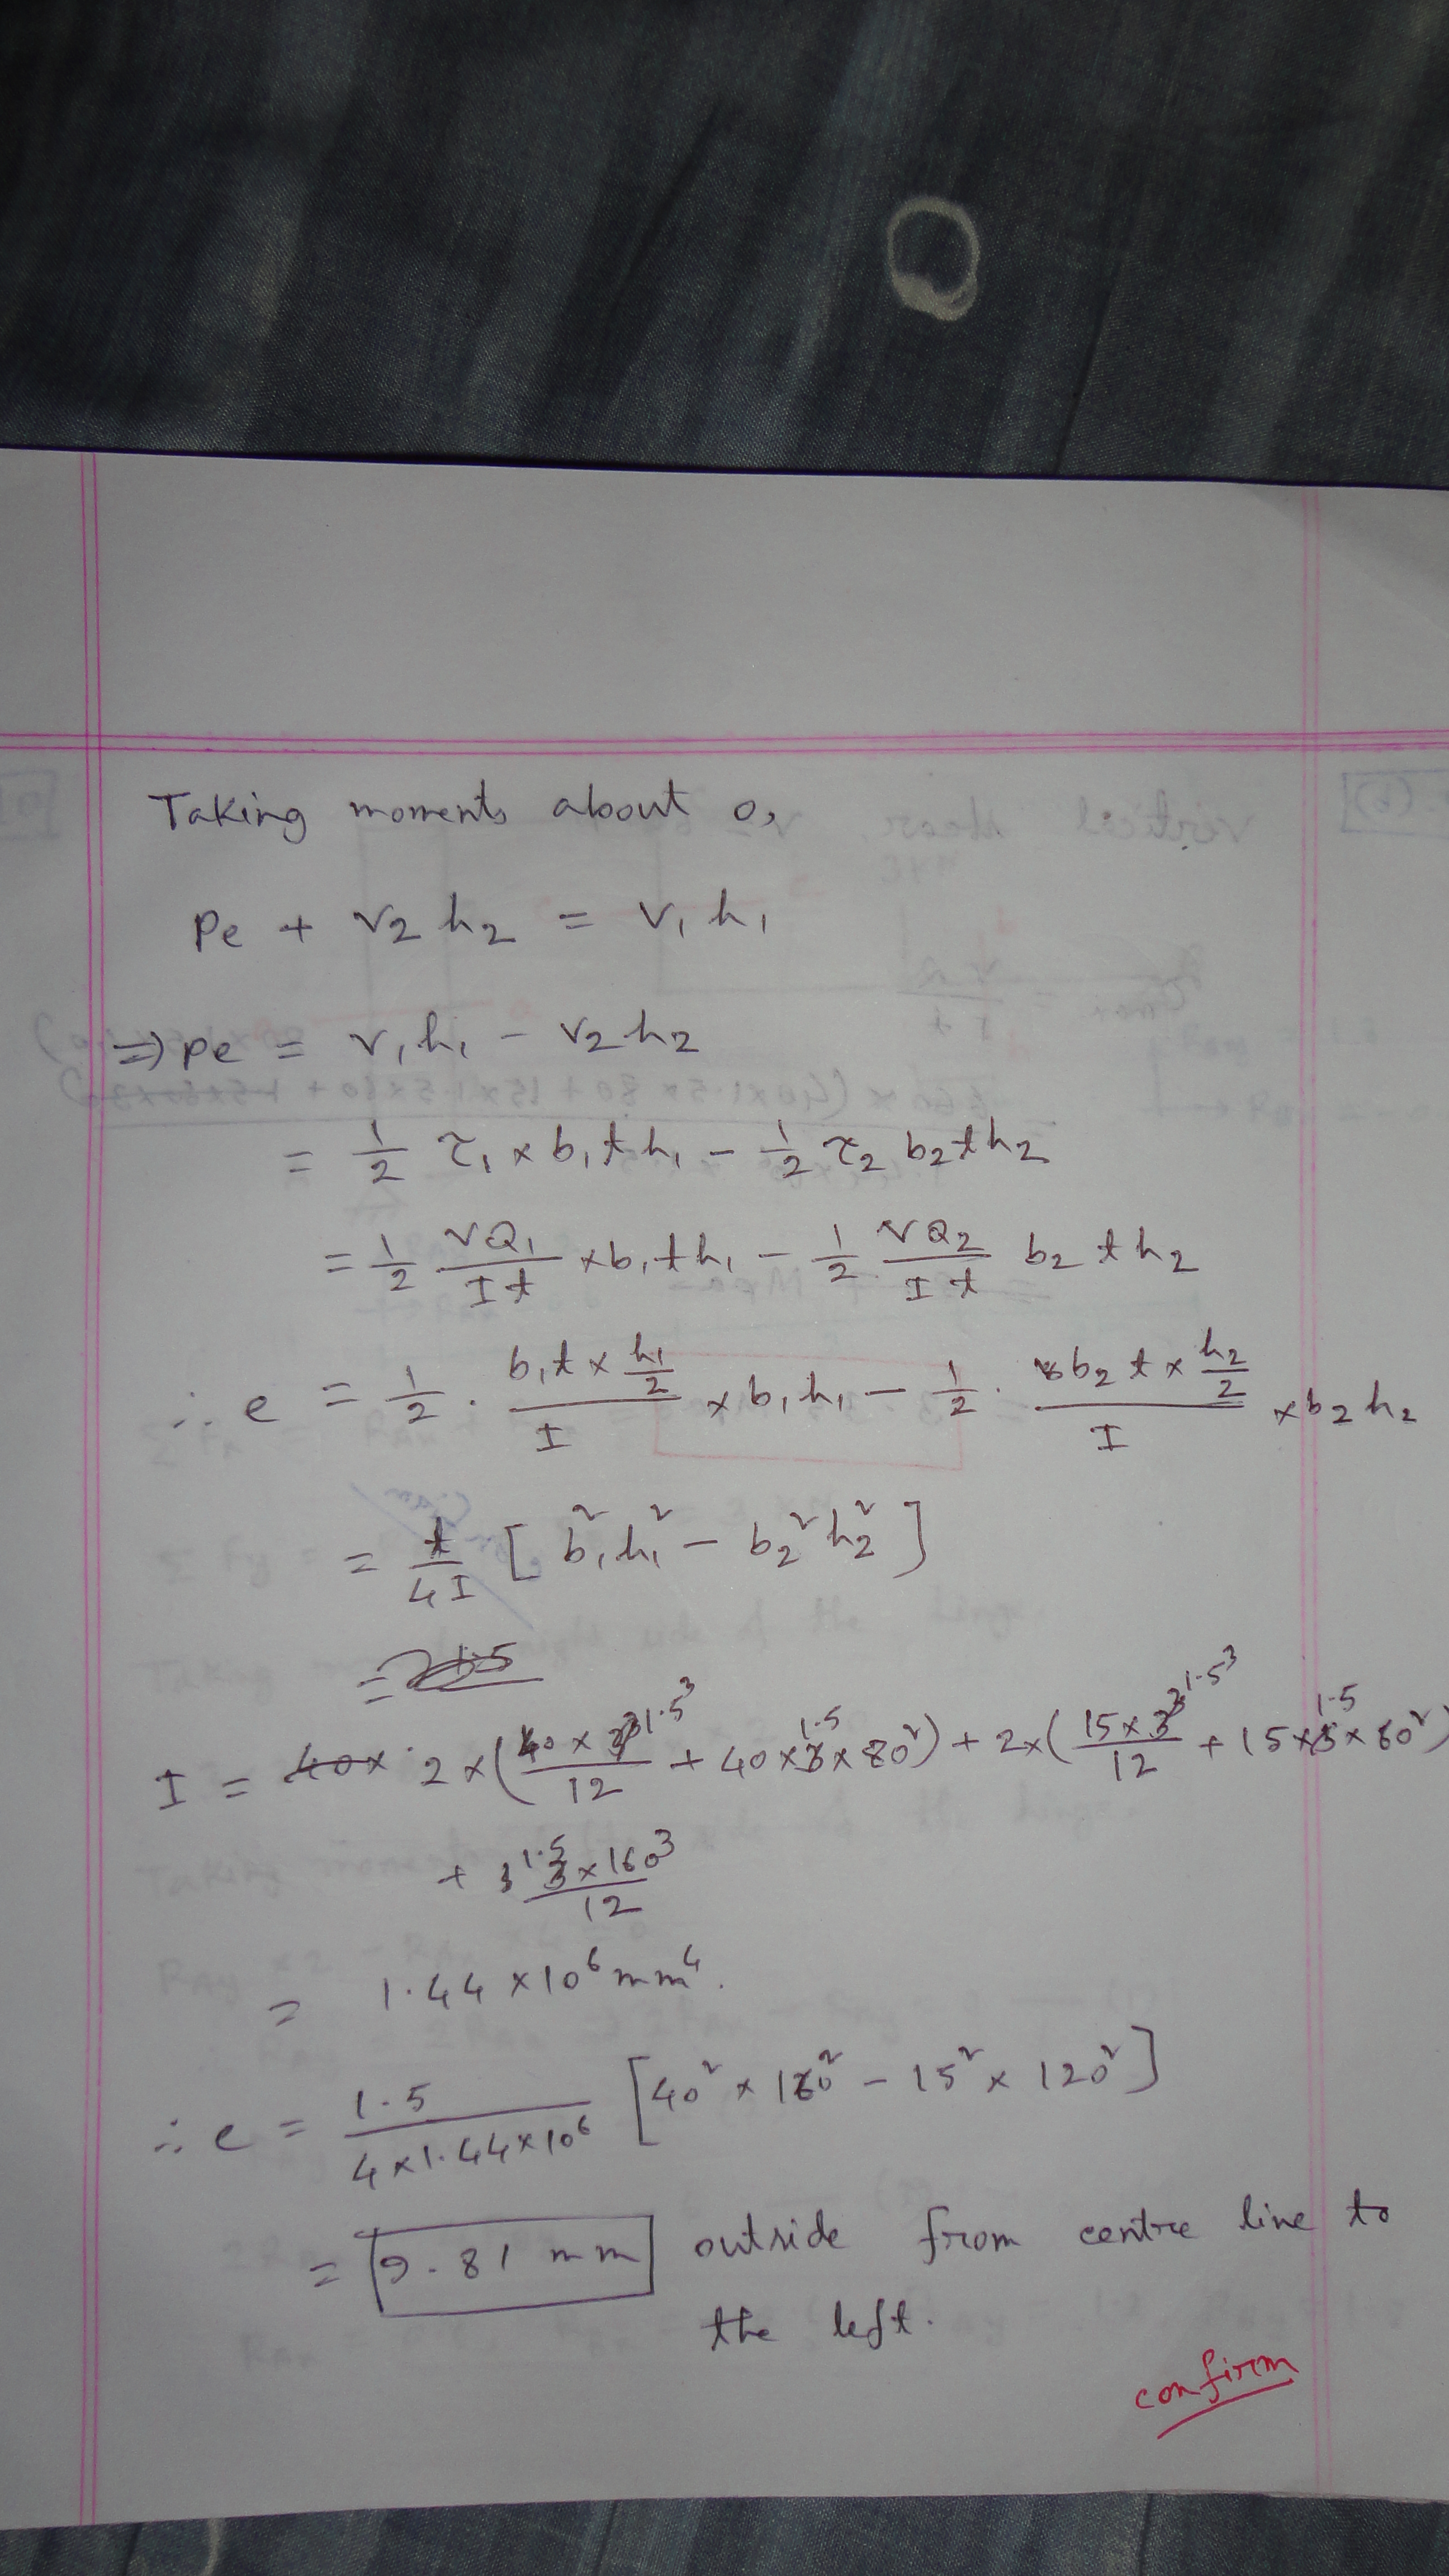 Taking moments about o,
Pe + V2 h2 = V1 h1
=> Pe = V1 h1 - V2 h2
= 1/2 τ1 × b1 t h1 - 1/2 τ2 b2 t h2
= 1/2 VQ1/It × b1 t h1 - 1/2 VQ2/It b2 t h2
∴ e = 1/2 · (b1 t × h1/2)/I × b1 h1 - 1/2 · (b2 t × h2/2)/I × b2 h2
= t/4I [b1² h1² - b2² h2²]
I = 40× 2 × (40 × 1.5³/12 + 40 × 1.5 × 80²) + 2 × (15 × 1.5³/12 + 15 × 1.5 × 60²)
+ 1.5 × 160³/12
= 1.44 × 10⁶ mm⁴.
∴ e = 1.5/(4 × 1.44 × 10⁶) [40² × 160² - 15² × 120²]
= 9.81 mm outside from centre line to
the left.
confirm